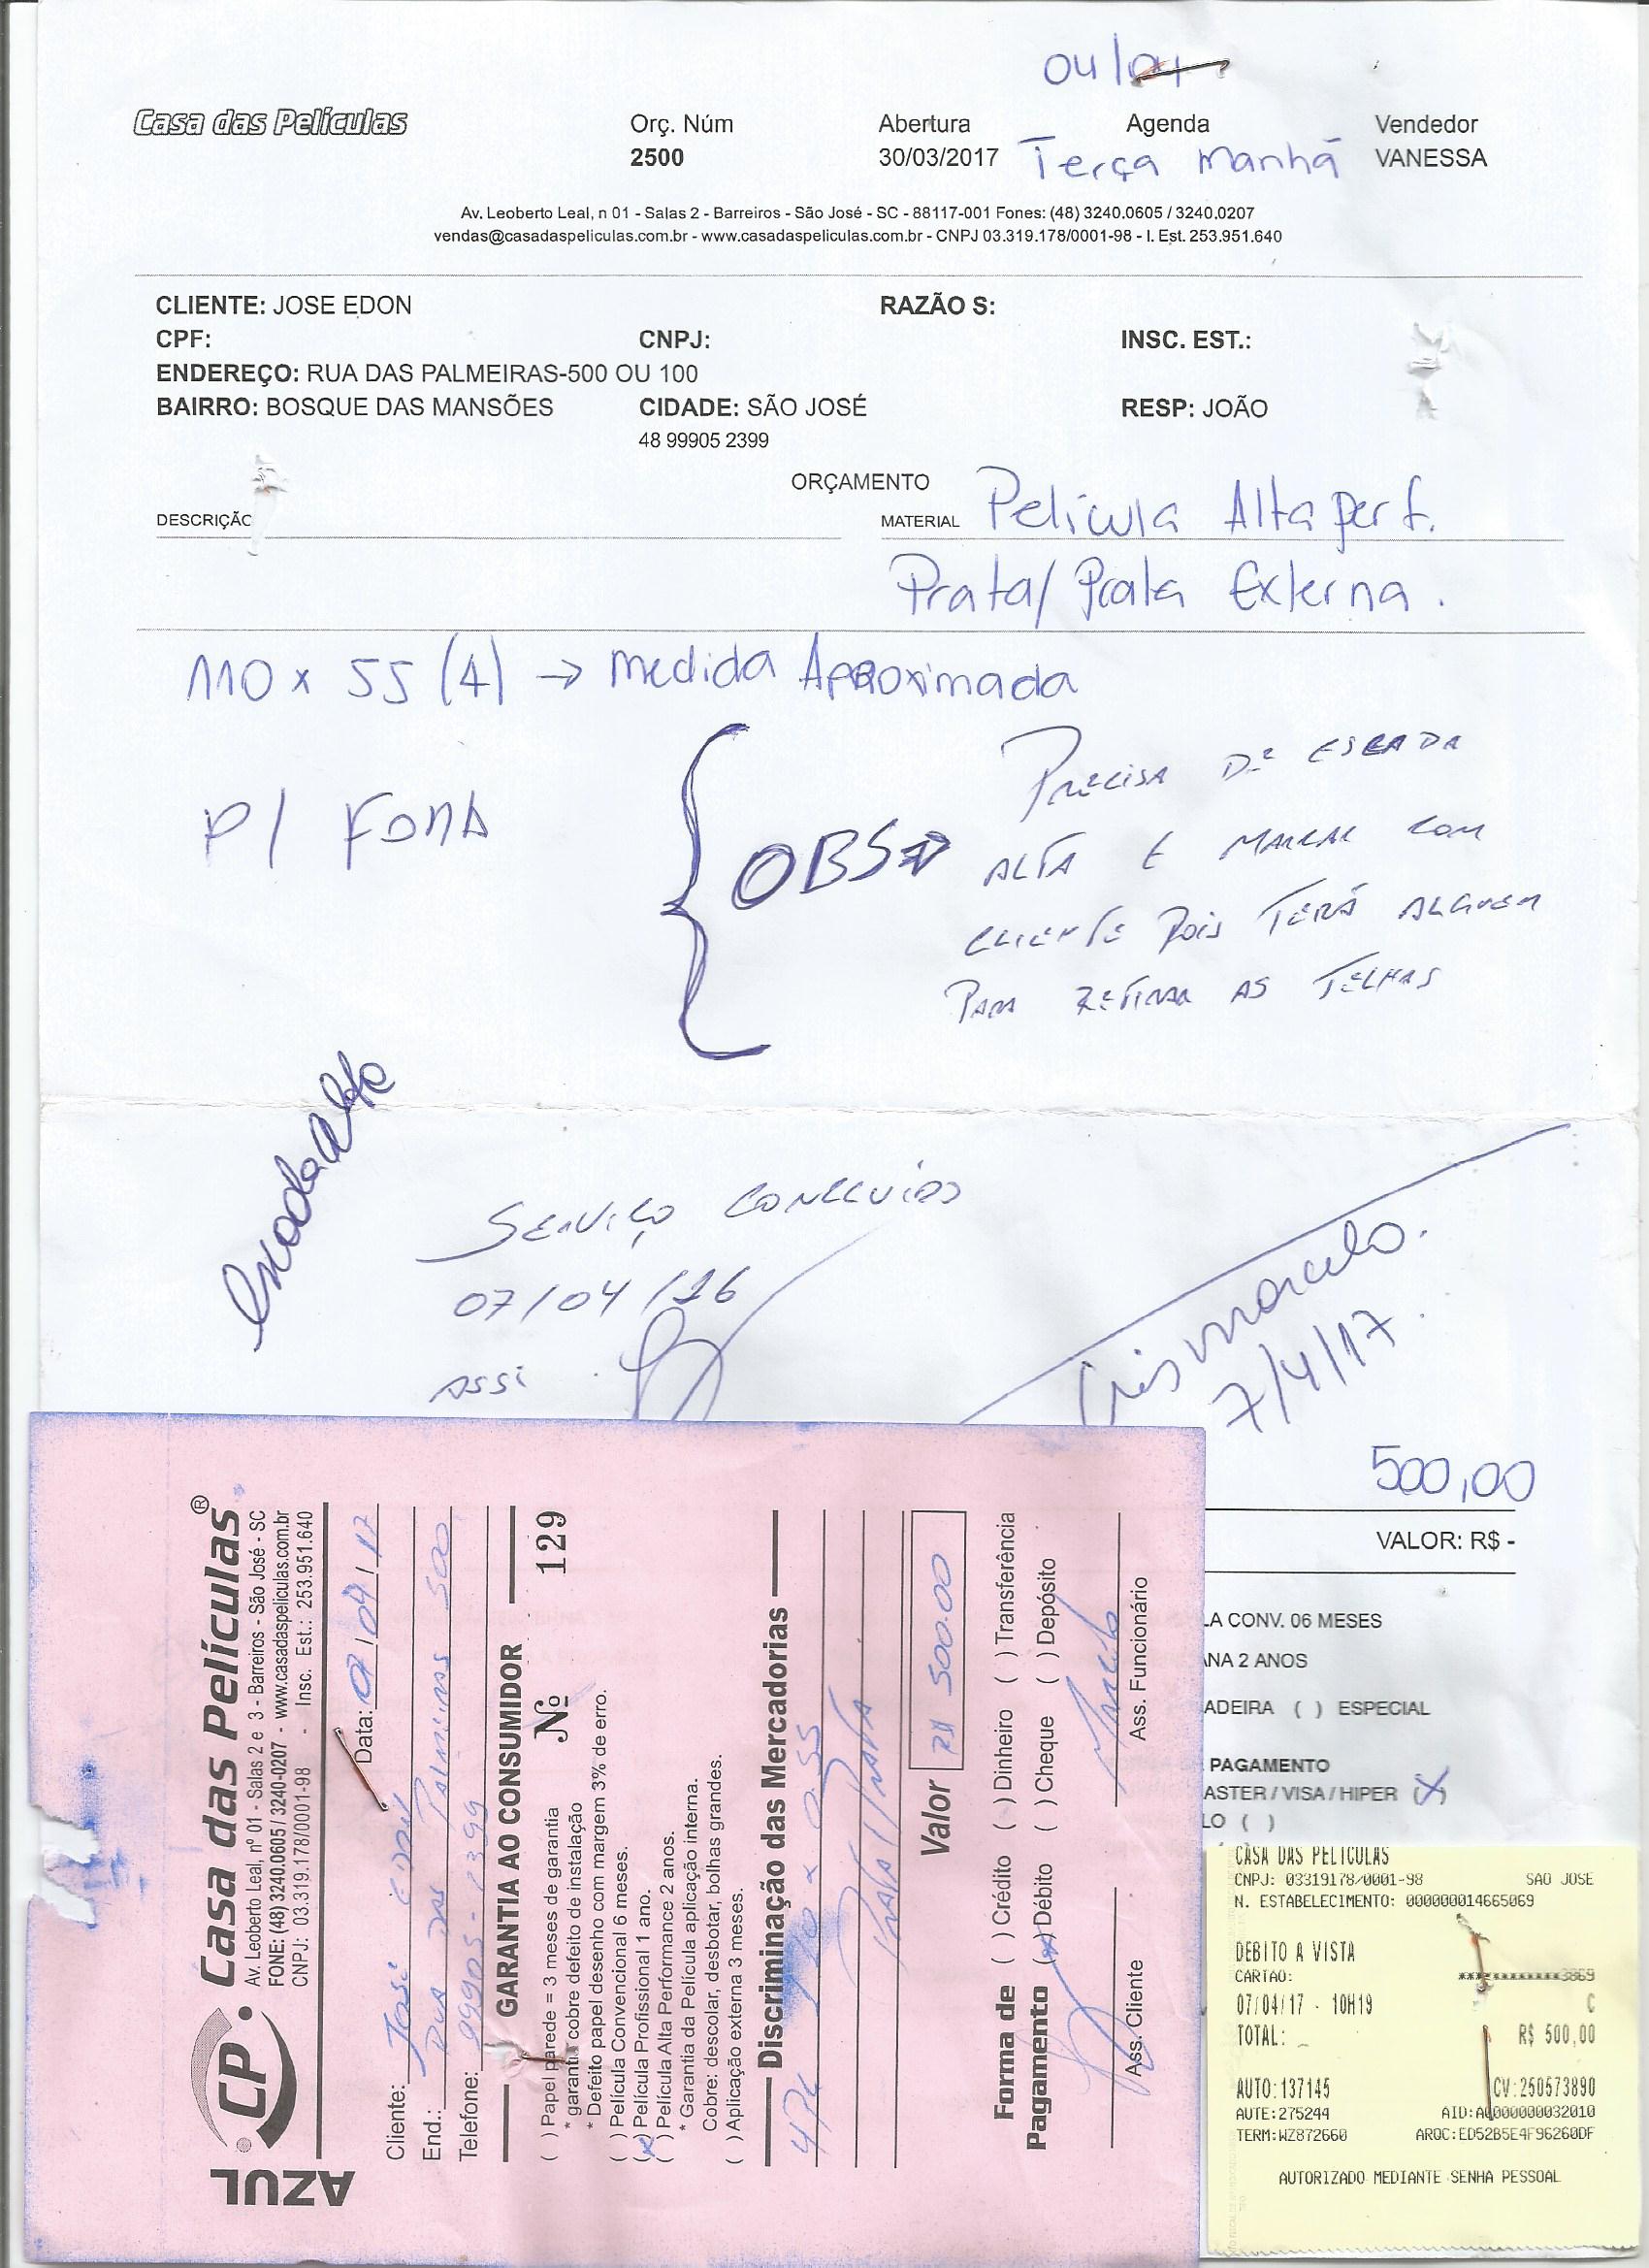 04/04
Casa das Películas
Orç. Núm Abertura Agenda Vendedor
2500 30/03/2017 Terça Manhã VANESSA
Av. Leoberto Leal, n 01 - Salas 2 - Barreiros - São José - SC - 88117-001 Fones: (48) 3240.0605 / 3240.0207
vendas@casadaspeliculas.com.br - www.casadaspeliculas.com.br - CNPJ 03.319.178/0001-98 - I. Est. 253.951.640
CLIENTE: JOSE EDON RAZÃO S:
CPF: CNPJ: INSC. EST.:
ENDEREÇO: RUA DAS PALMEIRAS-500 OU 100
BAIRRO: BOSQUE DAS MANSÕES CIDADE: SÃO JOSÉ RESP: JOÃO
48 99905 2399
ORÇAMENTO
DESCRIÇÃO MATERIAL Película Alta perf.
Prata/Prata Externa.
110 x 55 (4) → Medida Aproximada
P/ FORA
OBS → PRECISA DE ESCADA
ALTA E MARCAR COM
CLIENTE POIS TERÁ ALGUEM
PARA RETIRAR AS TELHAS
SERVIÇO CONCLUIDO
07/04/16
ASSI
Crismarcelo.
7/4/17.
500,00
VALOR: R$ -
LA CONV. 06 MESES
ANA 2 ANOS
ADEIRA ( ) ESPECIAL
PAGAMENTO
ASTER / VISA / HIPER (X)
LO ( )
AZUL
CP
Casa das Películas®
Av. Leoberto Leal, nº 01 - Salas 2 e 3 - Barreiros - São José - SC
FONE: (48) 3240.0605 / 3240-0207 - www.casadaspeliculas.com.br
CNPJ: 03.319.178/0001-98 - Insc. Est.: 253.951.640
Data: 07/04/17
Cliente: José
End.: Rua das Palmeiras 500
Telefone: 99905-2399
GARANTIA AO CONSUMIDOR
( ) Papel parede = 3 meses de garantia Nº 129
* garantia cobre defeito de instalação
* Defeito papel desenho com margem 3% de erro.
( ) Película Convencional 6 meses.
(x) Película Profissional 1 ano.
( ) Película Alta Performance 2 anos.
* Garantia da Película aplicação interna.
Cobre: descolar, desbotar, bolhas grandes.
( ) Aplicação externa 3 meses.
Discriminação das Mercadorias
4 Pç 1.10 x 0.55
Prata/Prata
Valor R$ 500.00
Forma de Pagamento ( ) Crédito ( ) Dinheiro ( ) Transferência
(x) Débito ( ) Cheque ( ) Depósito
Marcelo
Ass. Cliente Ass. Funcionário
CASA DAS PELICULAS
CNPJ: 03319178/0001-98 SAO JOSE
N. ESTABELECIMENTO: 000000014665069
DEBITO A VISTA
CARTAO: ************3869
07/04/17 - 10H19 C
TOTAL: R$ 500,00
AUTO:137145 CV:250573890
AUTE:275244 AID:A0000000032010
TERM:WZ872660 ARQC:ED52B5E4F96260DF
AUTORIZADO MEDIANTE SENHA PESSOAL